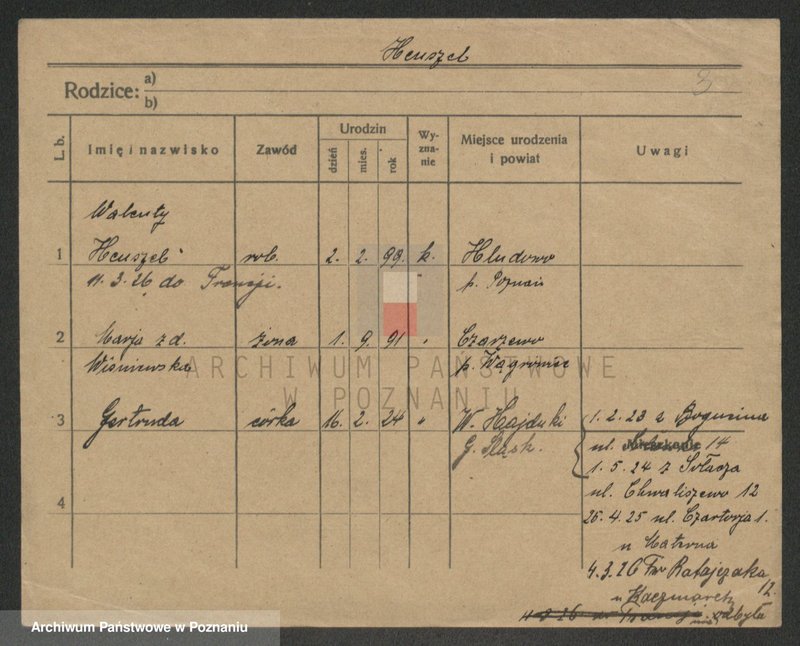 Heuszel
Rodzice: a)
b)
L. b. Imię i nazwisko Zawód Urodzin dzień mies. rok Wyznanie Miejsce urodzenia i powiat Uwagi
Walenty
1 Heuszel rob. 2. 2. 99. k. Hludowo
11. 3. 26 do Francji. p. Poznań
2 Marja z d. żona 1. 9. 91 " Czarzewo
Wiśniewska p. Wągrowiec
ARCHIWUM PAŃSTWOWE
W POZNANIU
3 Gertruda córka 16. 2. 24 " W. Hajduki
G. Śląsk.
1. 2. 23 z Bogucina
ul. 14
1. 5. 24 z Sołacza
ul. Chwaliszewo 12
4
25. 4. 25 ul. Czartorja 1.
u Matrona
4. 3. 26 Fr. Ratajczaka 12.
u Kaczmarek
odbyła
Archiwum Państwowe w Poznaniu